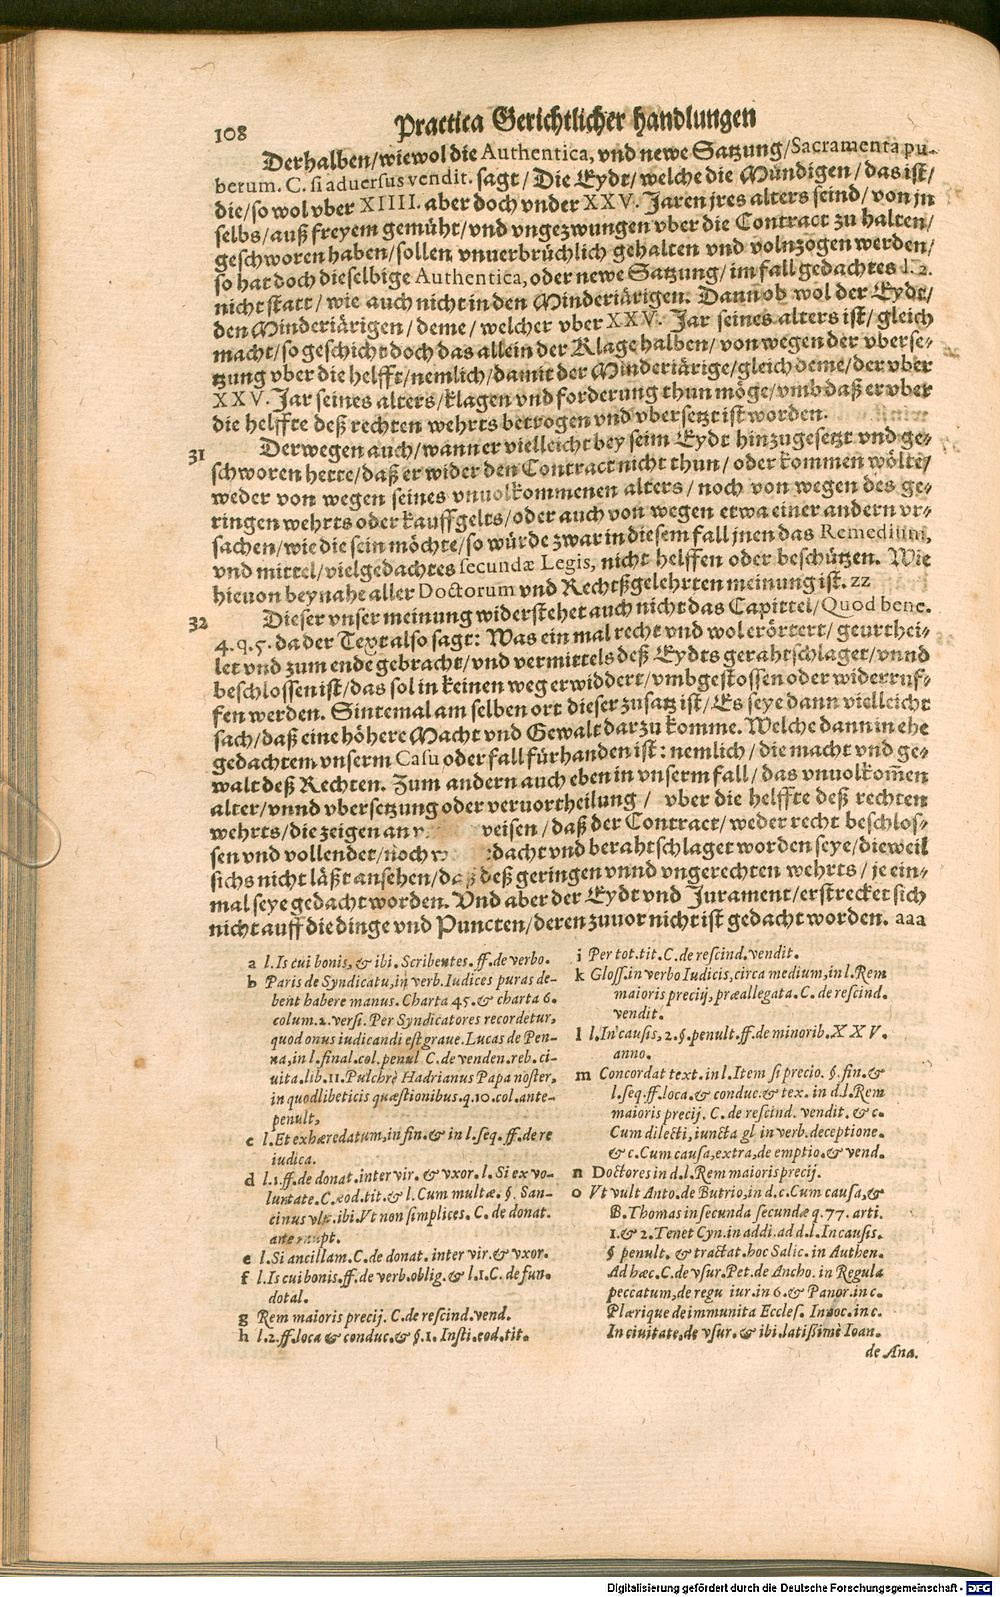 108 Practica Gerichtlicher handlungen
Derhalben/wiewol die Authentica, vnd newe Satzung/Sacramenta pu-
berum. C. si aduersus vendit. sagt/Die Eydt/welche die Mündigen/das ist/
die/so wol vber XIIII. aber doch vnder XXV. Jaren jres alters seind/von jn
selbs/auß freyem gemüht/vnd vngezwungen vber die Contract zu halten/
geschworen haben/sollen vnuerbrüchlich gehalten vnd volnzogen werden/
so hat doch dieselbige Authentica, oder newe Satzung/im fall gedachtes l. 2.
nicht statt/wie auch nicht in den Minderjärigen. Dann ob wol der Eydt/
den Minderjärigen/deme/welcher vber XXV. Jar seines alters ist/gleich
macht/so geschicht doch das allein der Klage halben/von wegen der vberse-
tzung vber die helfft/nemlich/damit der Minderjärige/gleich deme/der vber
XXV. Jar seines alters/klagen vnd forderung thun möge/vmb daß er vber
die helffte deß rechten wehrts betrogen vnd vbersetzt ist worden.
31 Derwegen auch/wann er vielleicht bey seim Eydt hinzugesetzt vnd ge-
schworen hette/daß er wider den Contract nicht thun/oder kommen wölte/
weder von wegen seines vnuolkommenen alters/noch von wegen des ge-
ringen wehrts oder kauffgelts/oder auch von wegen etwa einer andern vr-
sachen/wie die sein möchte/so würde zwar in diesem fall jnen das Remedium,
vnd mittel/vielgedachtes secundæ Legis, nicht helffen oder beschützen. Wie
hieuon bey nahe aller Doctorum vnd Rechtßgelehrten meinung ist. zz
32 Dieser vnser meinung widerstehet auch nicht das Capittel/Quod bene.
4. q. 5. da der Text also sagt: Was ein mal recht vnd wol erörtert/geurthei-
let vnd zum ende gebracht/vnd vermittels deß Eydts gerahtschlaget/vnnd
beschlossen ist/das sol in keinen weg erwiddert/vmbgestossen oder widerruf-
fen werden. Sintemal am selben ort dieser zusatz ist/Es seye dann vielleicht
sach/daß eine höhere Macht vnd Gewalt darzu komme. Welche dann in ehe
gedachtem vnserm Casu oder fall fürhanden ist: nemlich/die macht vnd ge-
walt deß Rechten. Zum andern auch eben in vnserm fall/das vnuolkom̃en
alter/vnnd vbersetzung oder veruortheilung/ vber die helffte deß rechten
wehrts/die zeigen an v veisen/daß der Contract/weder recht beschlos-
sen vnd vollendet/noch w dacht vnd berahtschlaget worden seye/dieweil
sichs nicht läßt ansehen/daß deß geringen vnnd vngerechten wehrts/je ein-
mal seye gedacht worden. Vnd aber der Eydt vnd Jurament/erstrecket sich
nicht auff die dinge vnd Puncten/deren zuuor nicht ist gedacht worden. aaa
a l. Is cui bonis, & ibi. Scribentes. ff. de verbo.
b Paris de Syndicatu, in verb. Iudices puras de-
bent habere manus. Charta 45. & charta 6.
colum. 2. versi. Per Syndicatores recordetur,
quod onus iudicandi est graue. Lucas de Pen-
na, in l. final. col. penul C. de venden. reb. ci-
uita. lib. 11. Pulchrè Hadrianus Papa noster,
in quodlibeticis quæstionibus. q. 10. col. ante-
penult,
c l. Et exhæredatum, in fin. & in l. seq. ff. de re
iudica.
d l. 1. ff. de donat. inter vir. & vxor. l. Si ex vo-
luntate. C. æod. tit. & l. Cum multæ. §. San-
cimus vlt. ibi. Vt non simplices. C. de donat.
ante nupt.
e l. Si ancillam. C. de donat. inter vir. & vxor.
f l. Is cui bonis. ff. de verb. oblig. & l. 1. C. de fun.
dotal.
g Rem maioris precij. C. de rescind. vend.
h l. 2. ff. loca & conduc. & §. 1. Insti. eod. tit.
i Per tot. tit. C. de rescind. vendit.
k Gloss. in verbo Iudicis, circa medium, in l. Rem
maioris precij, præallegata. C. de rescind.
vendit.
l l. In causis, 2. §. penult. ff. de minorib. XXV.
anno.
m Concordat text. in l. Item si precio. §. fin. &
l. seq. ff. loca. & conduc. & tex. in d. l. Rem
maioris precij. C. de rescind. vendit. & c.
Cum dilecti, iuncta gl in verb. deceptione.
& c. Cum causa, extra, de emptio. & vend.
n Doctores in d. l. Rem maioris precij.
o Vt vult Anto. de Butrio, in d. c. Cum causa, &
B. Thomas in secunda secundæ q. 77. arti.
1. & 2. Tenet Cyn. in addi. ad d. l. In causis.
§ penult. & tractat. hoc Salic. in Authen.
Ad hæc. C. de vsur. Pet. de Ancho. in Regula
peccatum, de regu iur. in 6. & Panor. in c.
Plærique de immunita Eccles. Innoc. in c.
In ciuitate, de vsur. & ibi latißimè Ioan.
de Ana.
Digitalisierung gefördert durch die Deutsche Forschungsgemeinschaft - DFG